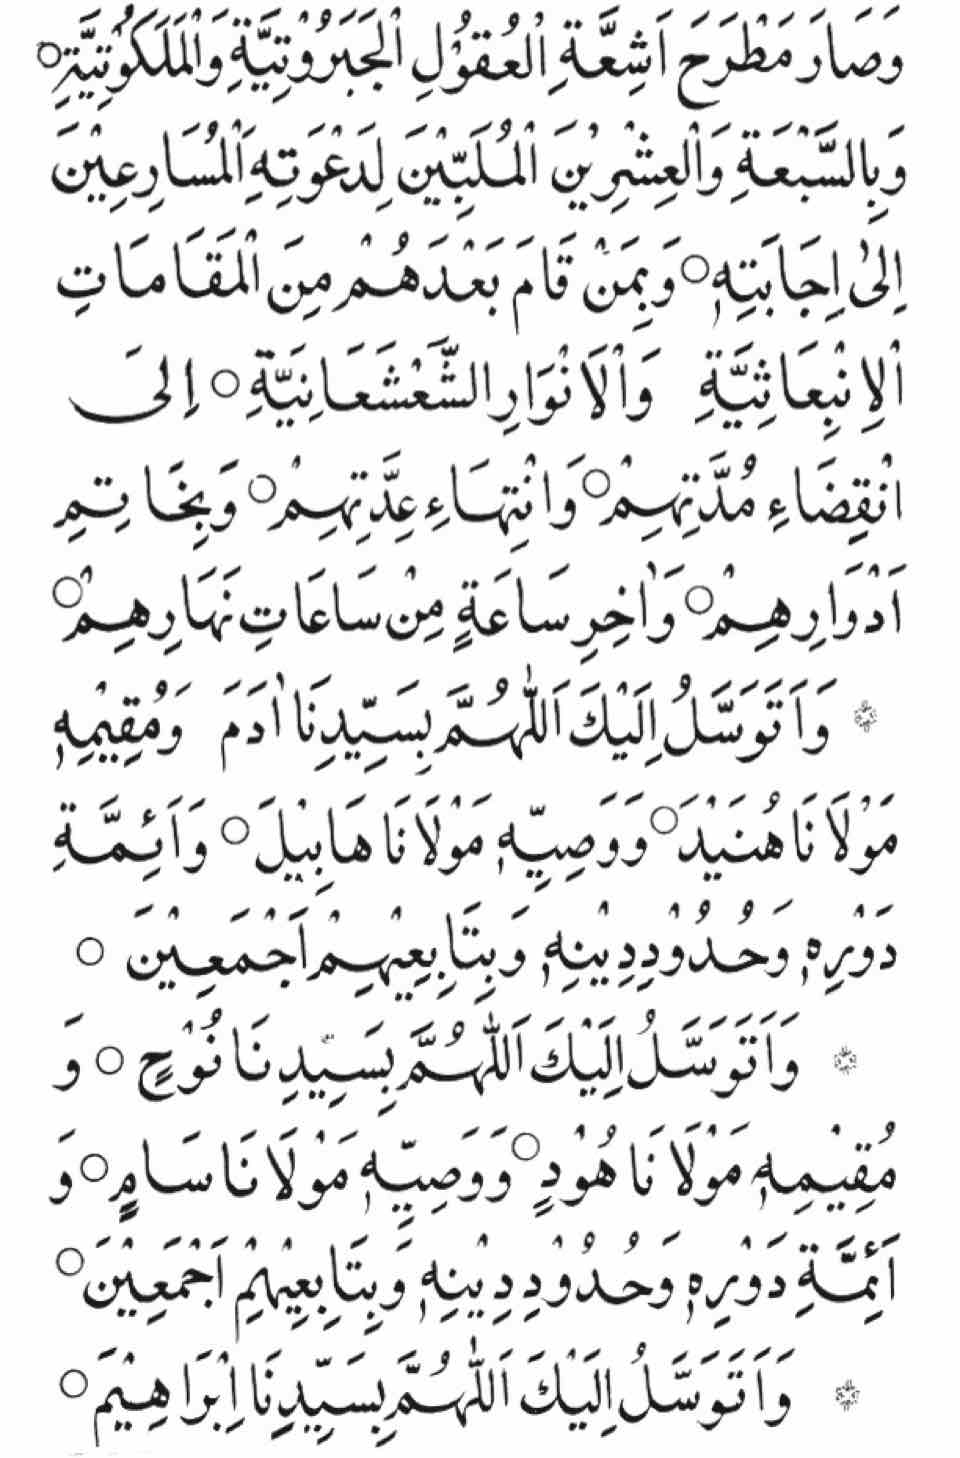 وَصَارَ مَطْرَحَ اَشِعَّةِ الْعُقُوْلِ الْجَبَرُوْتِيَّةِ وَالْمَلَكُوْتِيَّةِ ○
وَبِالسَّبْعَةِ وَالْعِشْرِيْنَ الْمُلَبِّيْنَ لِدَعْوَتِهِ الْمُسَارِعِيْنَ
اِلٰى اِجَابَتِهٖ ○ وَبِمَنْ قَامَ بَعْدَهُمْ مِنَ الْمَقَامَاتِ
الْاِنْبِعَاثِيَّةِ وَالْاَنْوَارِ الشَّعْشَعَانِيَّةِ ○ اِلىَ
انْقِضَاءِ مُدَّتِهِمْ ○ وَانْتِهَاءِ عِدَّتِهِمْ ○ وَبِخَاتِمِ
اَدْوَارِهِمْ ○ وَاٰخِرِ سَاعَةٍ مِنْ سَاعَاتِ نَهَارِهِمْ ○
۞ وَاَتَوَسَّلُ اِلَيْكَ اَللّٰهُمَّ بِسَيِّدِنَا اٰدَمَ وَمُقِيْمِهٖ
مَوْلَانَا هُنَيْدَ ○ وَوَصِيِّهٖ مَوْلَانَا هَابِيْلَ ○ وَاَئِمَّةِ
دَوْرِهٖ وَحُدُوْدِ دِيْنِهٖ وَبِتَابِعِيْهِمْ اَجْمَعِيْنَ ○
۞ وَاَتَوَسَّلُ اِلَيْكَ اَللّٰهُمَّ بِسَيِّدِنَا نُوْحٍ ○ وَ
مُقِيْمِهٖ مَوْلَانَا هُوْدٍ ○ وَوَصِيِّهٖ مَوْلَانَا سَامٍ ○ وَ
اَئِمَّةِ دَوْرِهٖ وَحُدُوْدِ دِيْنِهٖ وَبِتَابِعِيْهِمْ اَجْمَعِيْنَ ○
۞ وَاَتَوَسَّلُ اِلَيْكَ اَللّٰهُمَّ بِسَيِّدِنَا اِبْرَاهِيْمَ ○